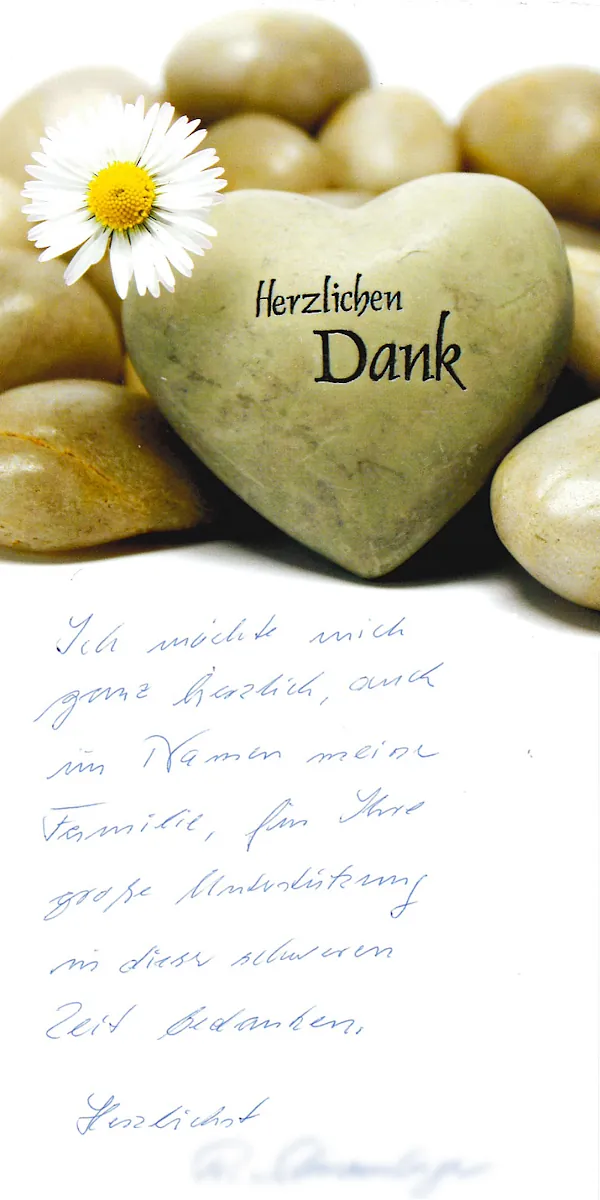 Herzlichen
Dank
Ich möchte mich
ganz herzlich, auch
im Namen meiner
Familie, für Ihre
große Unterstützung
in dieser schweren
Zeit bedanken.
Herzlichst